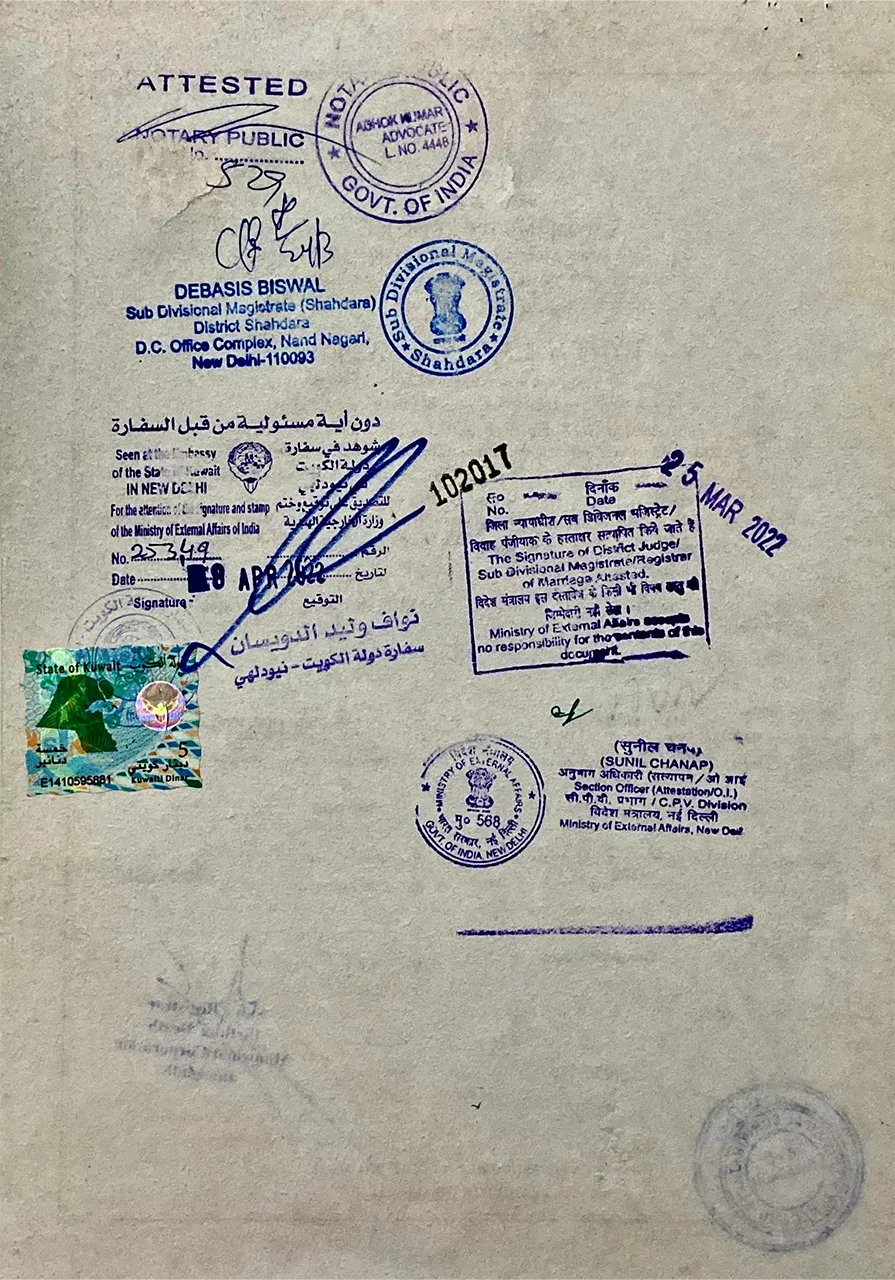 ATTESTED
NOTARY PUBLIC
NOTARY PUBLIC
ASHOK KUMAR
ADVOCATE
L. NO. 4448
GOVT. OF INDIA
529
DEBASIS BISWAL
Sub Divisional Magistrate (Shahdara)
District Shahdara
D.C. Office Complex, Nand Nagari,
New Delhi-110093
Sub Divisional Magistrate
Shahdara
دون أية مسئولية من قبل السفارة
Seen at the Embassy
of the State of Kuwait
IN NEW DELHI
For the attention of the signature and stamp
of the Ministry of External Affairs of India
No. 25349
Date 8 APR 2022
Signature
شوهد في سفارة
دولة الكويت
في نيودلهي
للتصديق على توقيع وختم
وزارة الخارجية الهندية
الرقم
التاريخ
التوقيع
نواف وليد الدويسان
سفارة دولة الكويت - نيودلهي
State of Kuwait دولة الكويت
خمسة
دنانير
5
دينار كويتي
Kuwaiti Dinar
E1410595881
102017
25 MAR 2022
सं०
No.
दिनाँक
Date
जिला न्यायाधीश/सब डिविजनल मजिस्ट्रेट/
विवाह पंजीयक के हस्ताक्षर सत्यापित किये जाते है
The Signature of District Judge/
Sub Divisional Magistrate/Registrar
of Marriage Attested.
विदेश मंत्रालय इस दस्तावेज के किसी भी विषय वस्तु की
जिम्मेदारी नहीं लेता ।
Ministry of External Affairs accepts
no responsibility for the contents of this
document.
विदेश मंत्रालय
MINISTRY OF EXTERNAL AFFAIRS
मु० 568
भारत सरकार, नई दिल्ली
GOVT. OF INDIA, NEW DELHI
(SUNIL CHANAP)
अनुभाग अधिकारी (सत्यापन/ओ आई
Section Officer (Attestation/O.I.)
सी.पी.वी. प्रभाग / C.P.V. Division
विदेश मंत्रालय, नई दिल्ली
Ministry of External Affairs, New Delhi